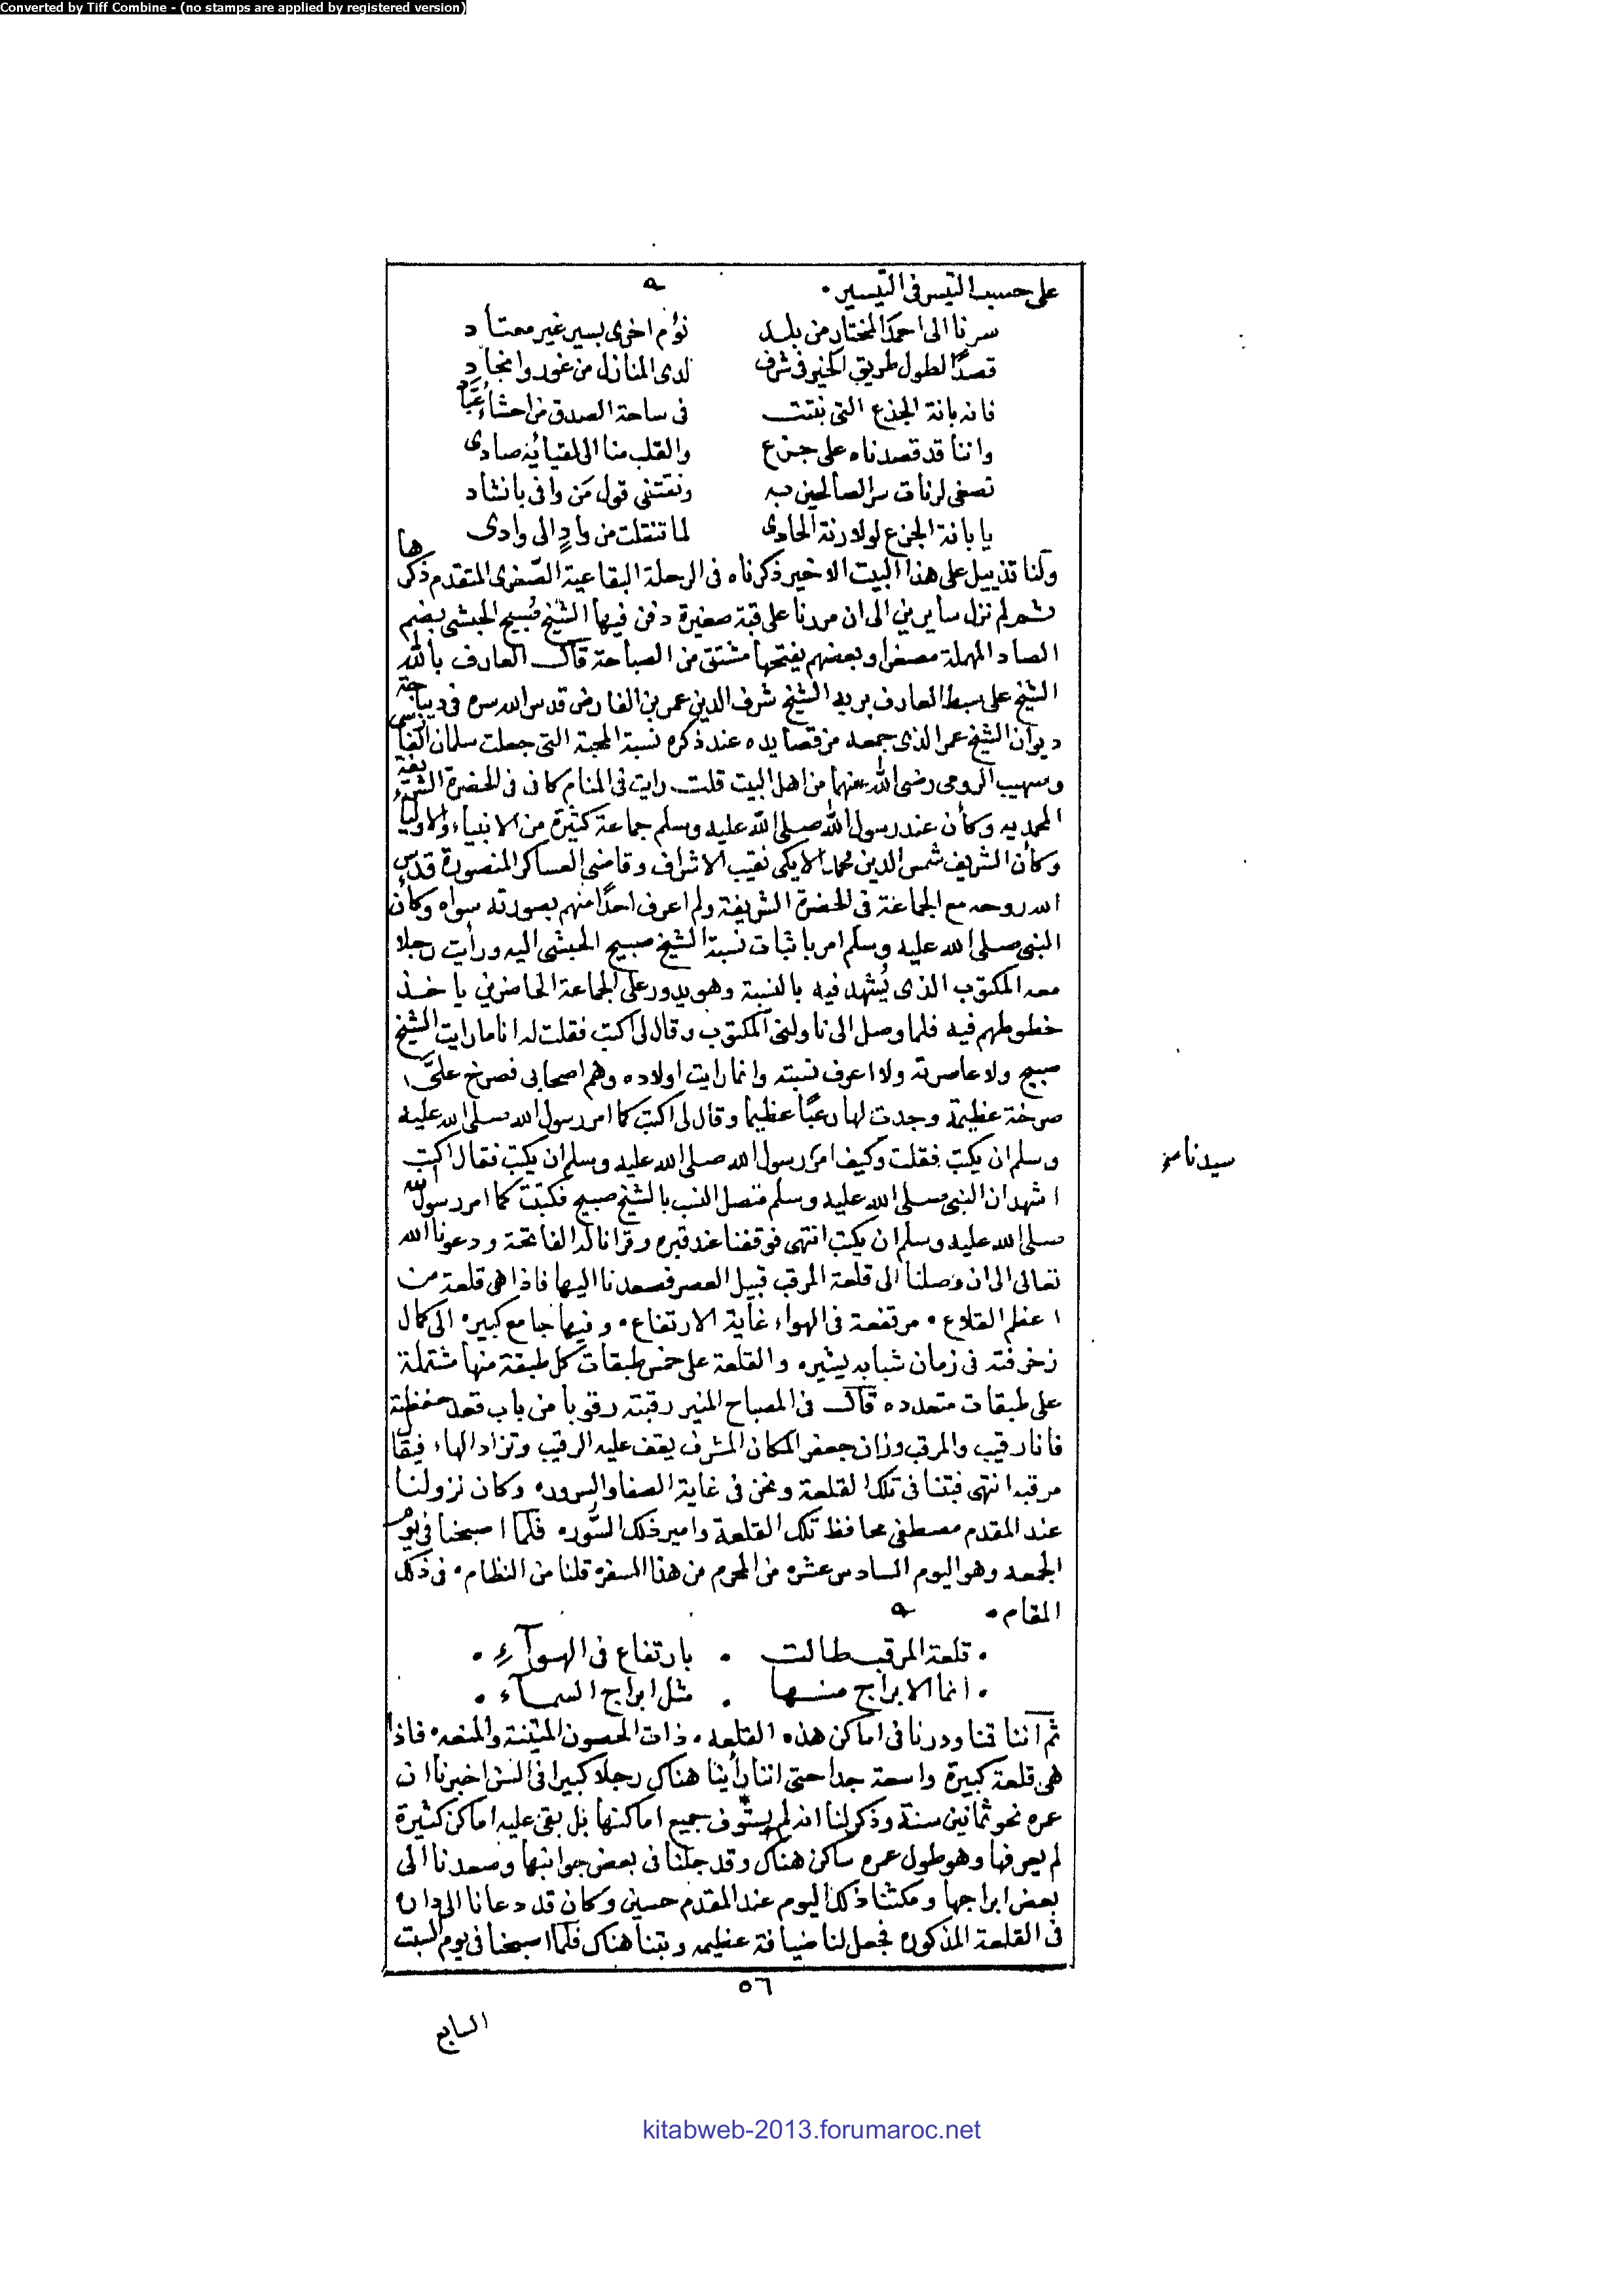 Converted by Tiff Combine - (no stamps are applied by registered version)
على حسب التيس في التيسير .
سرنا الى احمد المختار من بلد نؤم اخرى بسير غير معتاد
قصدًا لطول طريق الخير في شرف لدى المنازل من غور وانجادِ
فانه بانة الجذع التى نبتت في ساحة الصدق من احشاء عُبَّاد
واننا قد قصدناه على جزع والقلب منا الى لقيائه صادى
نصغى لرنات سر الصالحين به ونقتفى قول مَن وافى بانشاد
يا بانة الجزع لولا رنة الحادى لما تنقلت من وادٍ الى وادى
ولنا تذييل على هذا البيت الاخير ذكرناه في الرحلة البقاعية الصّغرى المتقدم ذكرها
ثم لم نزل سايرين الى ان مررنا على قبة صغيرة دفن فيها الشيخ صُبيح الحبشى بضم
الصاد المهملة مصغرا وبعضهم يفتحها مشتق من الصباحة قال العارف بالله
الشيخ على سبط العارف بربه الشيخ شرف الدين عمر بن الفارض قدس الله سره في ديباجة
ديوان الشيخ عمر الذى جمعه من قصايده عند ذكره نسبة المحبة التى جعلت سلمان الفارسى
وصهيب الرومى رضى الله عنهما من اهل البيت قلت رايت في المنام كانى في الحضرة الشريفة
المحمديه وكأن عند رسول الله صلى الله عليه وسلم جماعة كثيرة من الانبياء والاوليا
وكأن الشريف شمس الدين محمد الايكى نقيب الاشراف وقاضى العساكر المنصورة قدس
الله روحه مع الجماعة في الحضرة الشريفة ولم اعرف احدًا منهم بصورته سواه وكأن
النبى صلى الله عليه وسلم امر باثبات نسبة الشيخ صبيح الحبشى اليه ورأيت رجلا
معه المكتوب الذى يُشهد فيه بالنسبة وهو يدور على الجماعة الحاضرين ياخذ
خطوطهم فيه فلما وصل الى ناولنى المكتوب وقال لى اكتب فقلت له انا ما رايت الشيخ
صبيح ولا عاصرته ولا اعرف نسبته وانما رايت اولاده وهم اصحابى فصرخ علىَّ
صرخة عظيمة وجدت لها رعبًا عظيما وقال لى اكتب كما امر رسول الله صلى الله عليه
وسلم ان يكتب فقلت وكيف امر رسول الله صلى الله عليه وسلم ان يكتب فقال اكتب
سيدنا صح
اشهد ان النبى صلى الله عليه وسلم متصل النسب بالشيخ صبيح فكتبت كما امر رسول الله
صلى الله عليه وسلم ان يكتب انتهى فوقفنا عند قبره وقرانا له الفاتحة ودعونا الله
تعالى الى ان وصلنا الى قلعة المرقب قبيل العصر فصعدنا اليها فاذا هى قلعة من
اعظم القلاع . مرتفعة في الهواء غاية الارتفاع . وفيها جامع كبير . الى كمال
زخرفته في زمان شبابه يشير . والقلعة على خمس طبقات كل طبقة منها مشتملة
على طبقات متعدده قال في المصباح المنير رقبته رقوبا من باب قعد حفظته
فانا رقيب والمرقب وزان جعفر المكان المشرف يقف عليه الرقيب وتزاد الهاء فيقال
مرقبه انتهى فبتنا في تلك القلعة ونحن في غاية الصفا والسرور . وكان نزولنا
عند المقدم مصطفى محافظ تلك القلعة وامير ذلك السُّور . فلما اصبحنا في يوم
الجمعه وهو اليوم السادس عشر من المحرم من هذا المسفره قلنا من النظام . في ذلك
المقام .
. قلعة المرقب طالت . بارتفاع في الهوآءِ .
. انما الابراج منها . مثل ابراج السمآء .
ثم اننا قمنا ودرنا في اماكن هذه القلعه . ذات الحصون المتينة والمنعه . فاذا
هى قلعة كبيرة واسعة جدا حتى اننا رأينا هناك رجلا كبيرا في السن اخبرنا ان
عمره نحو ثمانين سنة وذكر لنا انه لم يستوف جميع اماكنها بل بقى عليه اماكن كثيرة
لم يعرفها وهو طول عمره ساكن هناك وقد جلنا في بعض جوانبها وصعدنا الى
بعض ابراجها ومكثنا ذلك اليوم عند المقدم حسين وكان قد دعانا الى داره
في القلعة المذكوره فجعل لنا ضيافة عظيمه وبتنا هناك فلما اصبحنا في يوم السبت
٥٦
السابع
kitabweb-2013.forumaroc.net